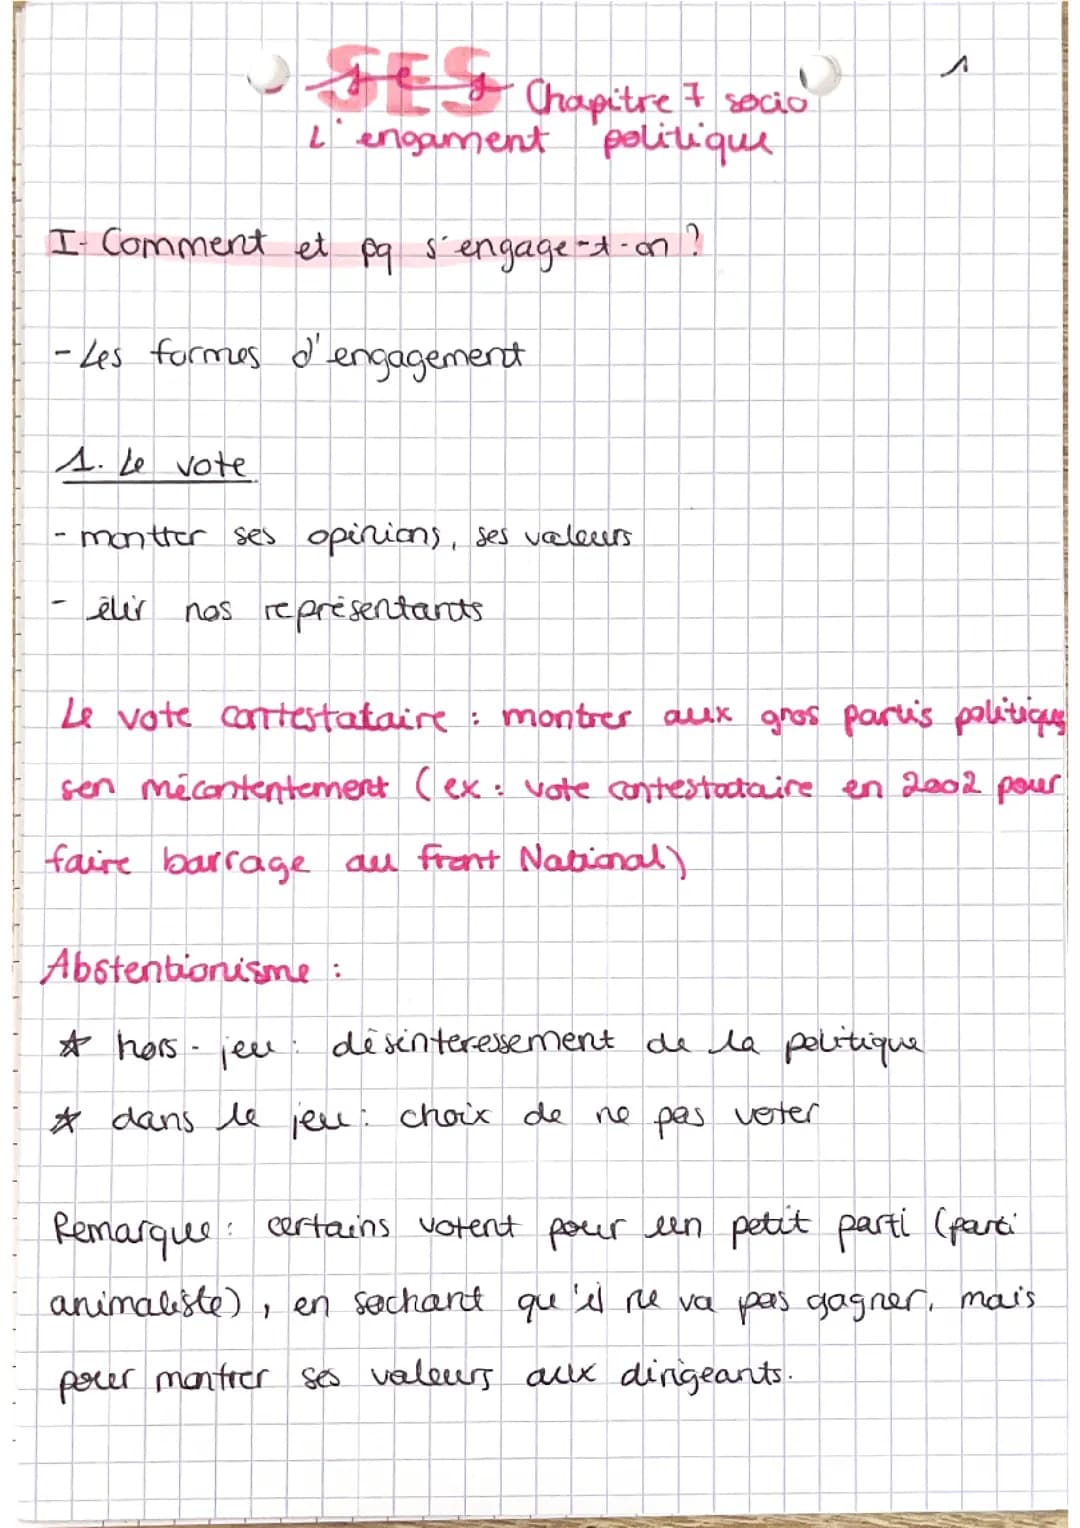 SES
1
Chapitre 7 socio
L'engament politique
I- Comment et pq s'engage-t-on ?
- Les formes d'engagement
1. Le vote
- montrer ses opinions, ses valeurs
- élir nos représentants
Le vote contestataire : montrer aux gros partis politiques
son mécontentement (ex : vote contestataire en 2002 pour
faire barrage au Front National)
Abstentionisme :
☆ hors-jeu : désinteressement de la politique
☆ dans le jeu : choix de ne pas voter
Remarque : certains votent pour un petit parti (parti
animaliste), en sachant qu'il ne va pas gagner, mais
pour montrer ses valeurs aux dirigeants.